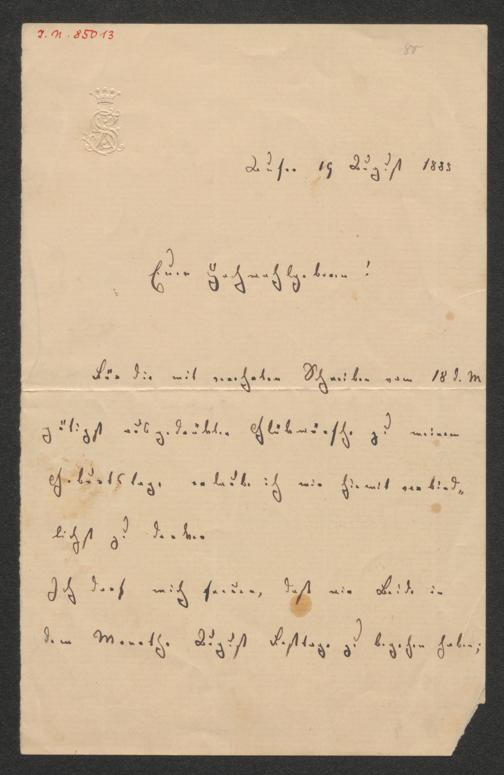 I. N. 85013
80
Aussee 19 August 1883
Euer Hochwohlgeboren!
Für die mit verehrten Schreiben vom 18 d. M
gütigst ausgedrückten Glückwünsche zu meinem
Geburtstage erlaube ich mir hiermit verbind„
lichst zu danken
Ich darf mich freuen, daß wir Beide in
dem Monathe August Festtage zu begehen haben;